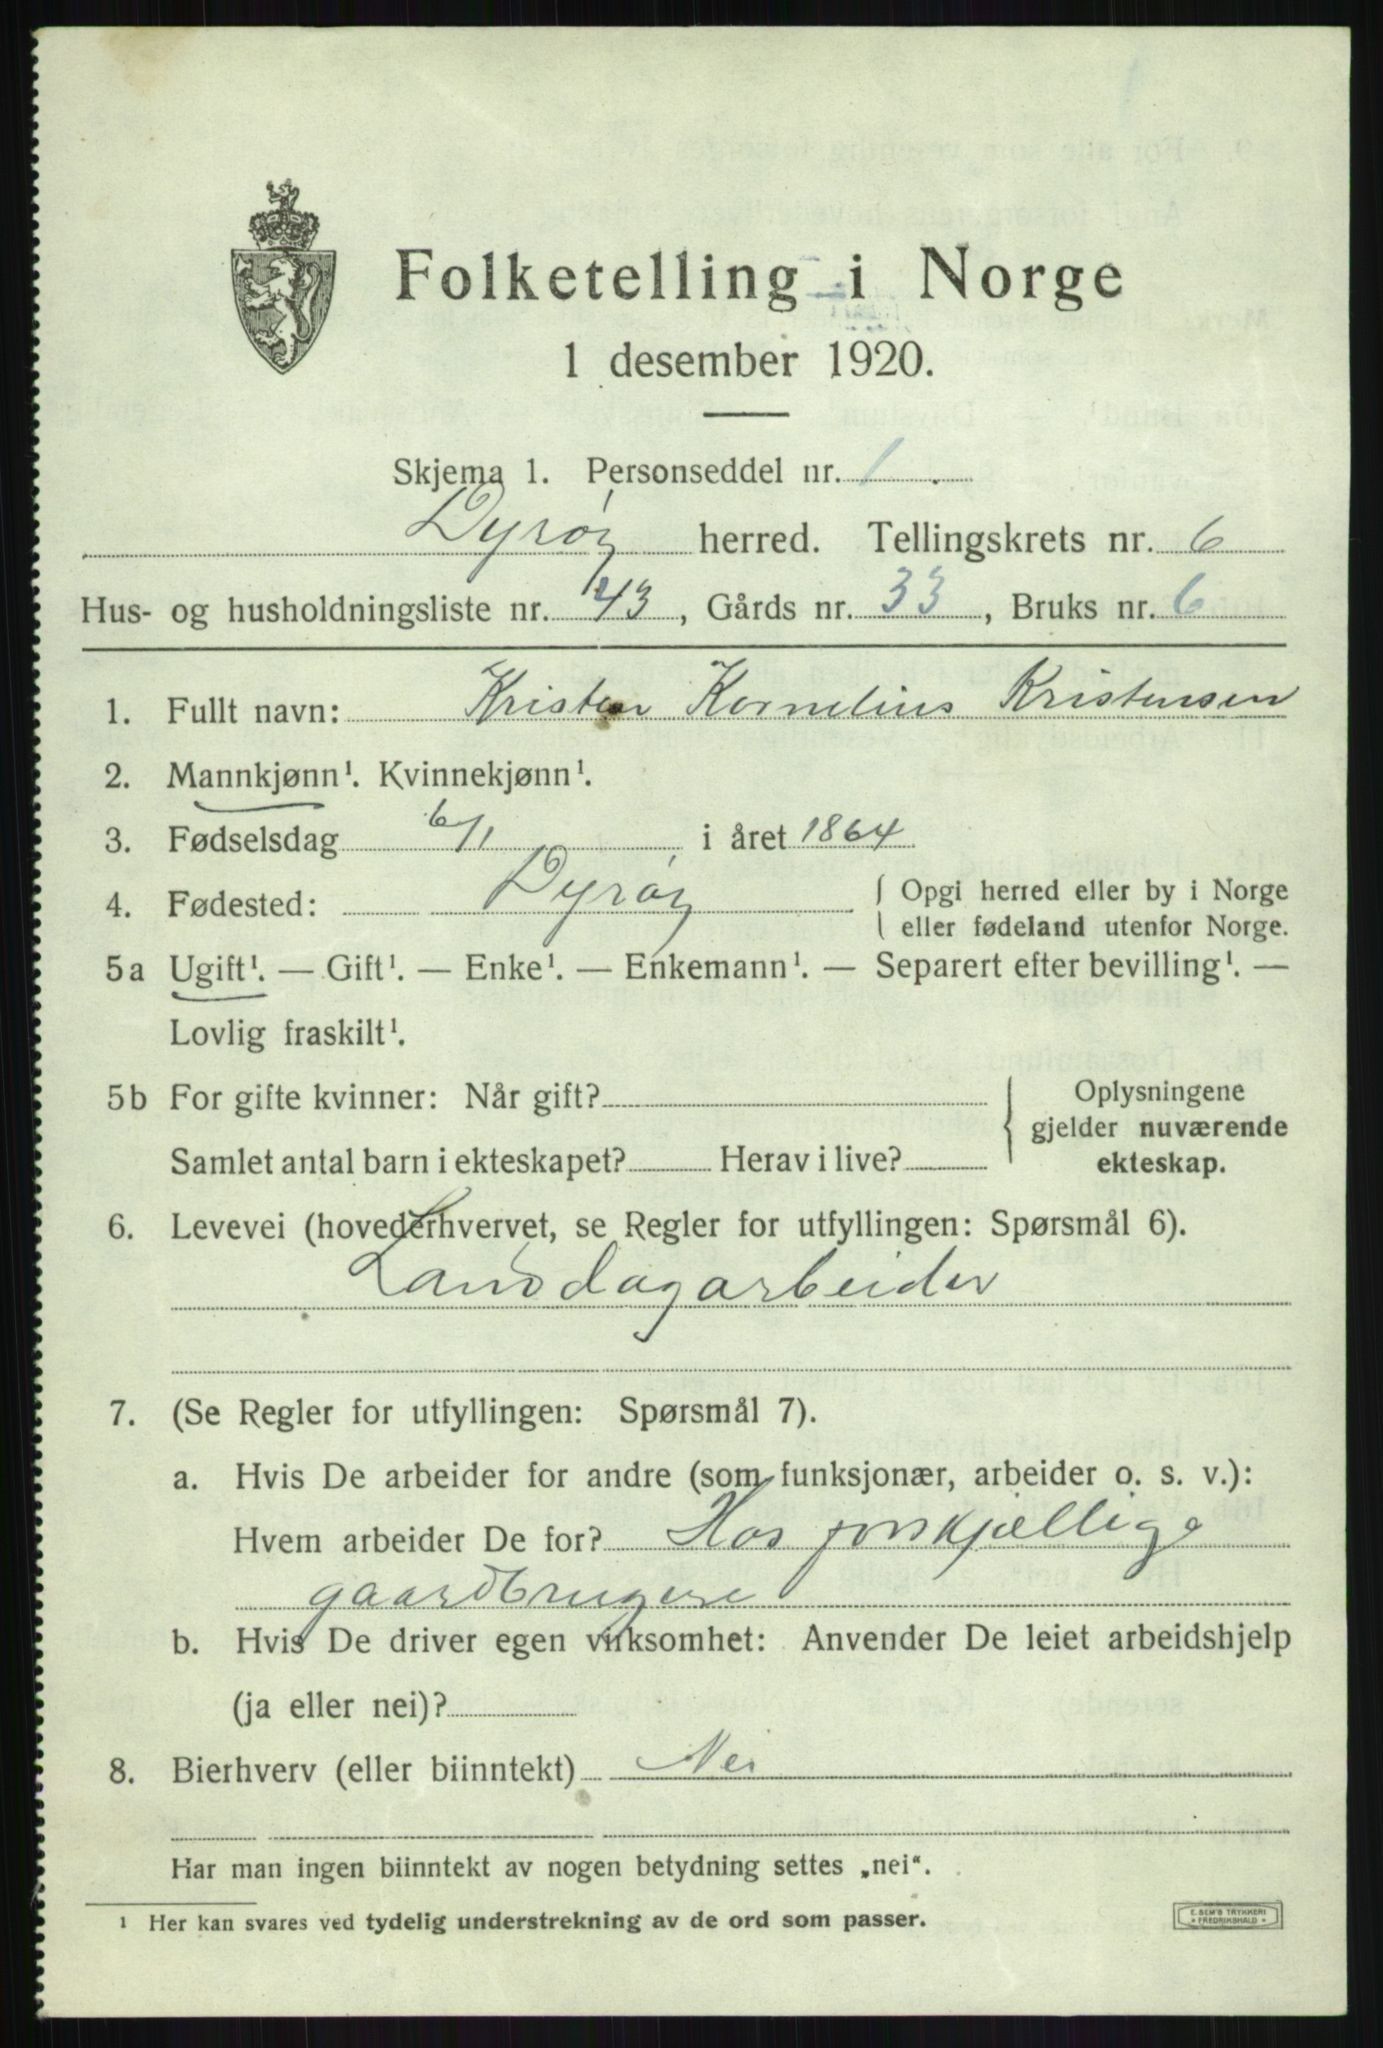 Folketelling i Norge
1 desember 1920.
Skjema 1. Personseddel nr. 1.
Dyrøy herred. Tellingskrets nr. 6
Hus- og husholdningsliste nr. 43, Gårds nr. 33, Bruks nr. 6
1. Fullt navn: Kristen Kornelius Kristensen
2. Mannkjønn¹. Kvinnekjønn¹.
3. Fødselsdag 6/1 i året 1864
4. Fødested: Dyrøy { Opgi herred eller by i Norge
eller fødeland utenfor Norge.
5a Ugift¹. — Gift¹. — Enke¹. — Enkemann¹. — Separert efter bevilling¹. —
Lovlig fraskilt¹.
5b For gifte kvinner: Når gift? } Oplysningene
gjelder nuværende
Samlet antal barn i ekteskapet? Herav i live? ekteskap.
6. Levevei (hovederhvervet, se Regler for utfyllingen: Spørsmål 6).
Landdagarbeider
7. (Se Regler for utfyllingen: Spørsmål 7).
a. Hvis De arbeider for andre (som funksjonær, arbeider o. s. v.):
Hvem arbeider De for? Hos forskjællige
gaardbrugere
b. Hvis De driver egen virksomhet: Anvender De leiet arbeidshjelp
(ja eller nei)?
8. Bierhverv (eller biinntekt) Nei
Har man ingen biinntekt av nogen betydning settes „nei“.
¹ Her kan svares ved tydelig understrekning av de ord som passer.
E. SEM'S TRYKKERI
* FREDRIKSHALD *